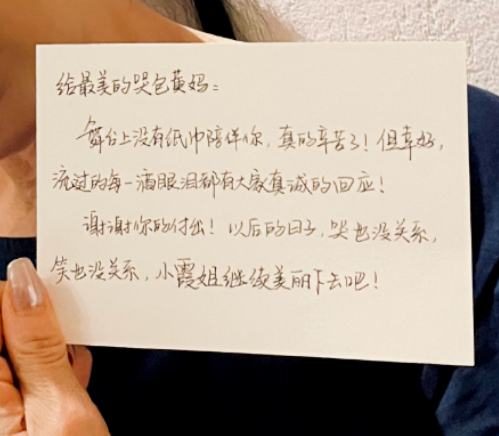 给最美的哭包黄妈：
舞台上没有纸巾陪伴你，真的辛苦了！但幸好，
流过的每一滴眼泪都有大家真诚的回应！
谢谢你的付出！以后的日子，哭也没关系，
笑也没关系，小霞姐继续美丽下去吧！